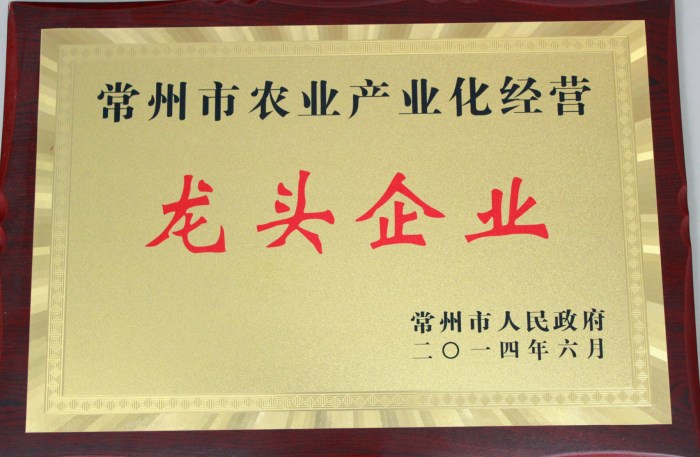 常州市农业产业化经营
龙头企业
常州市人民政府
二〇一四年六月